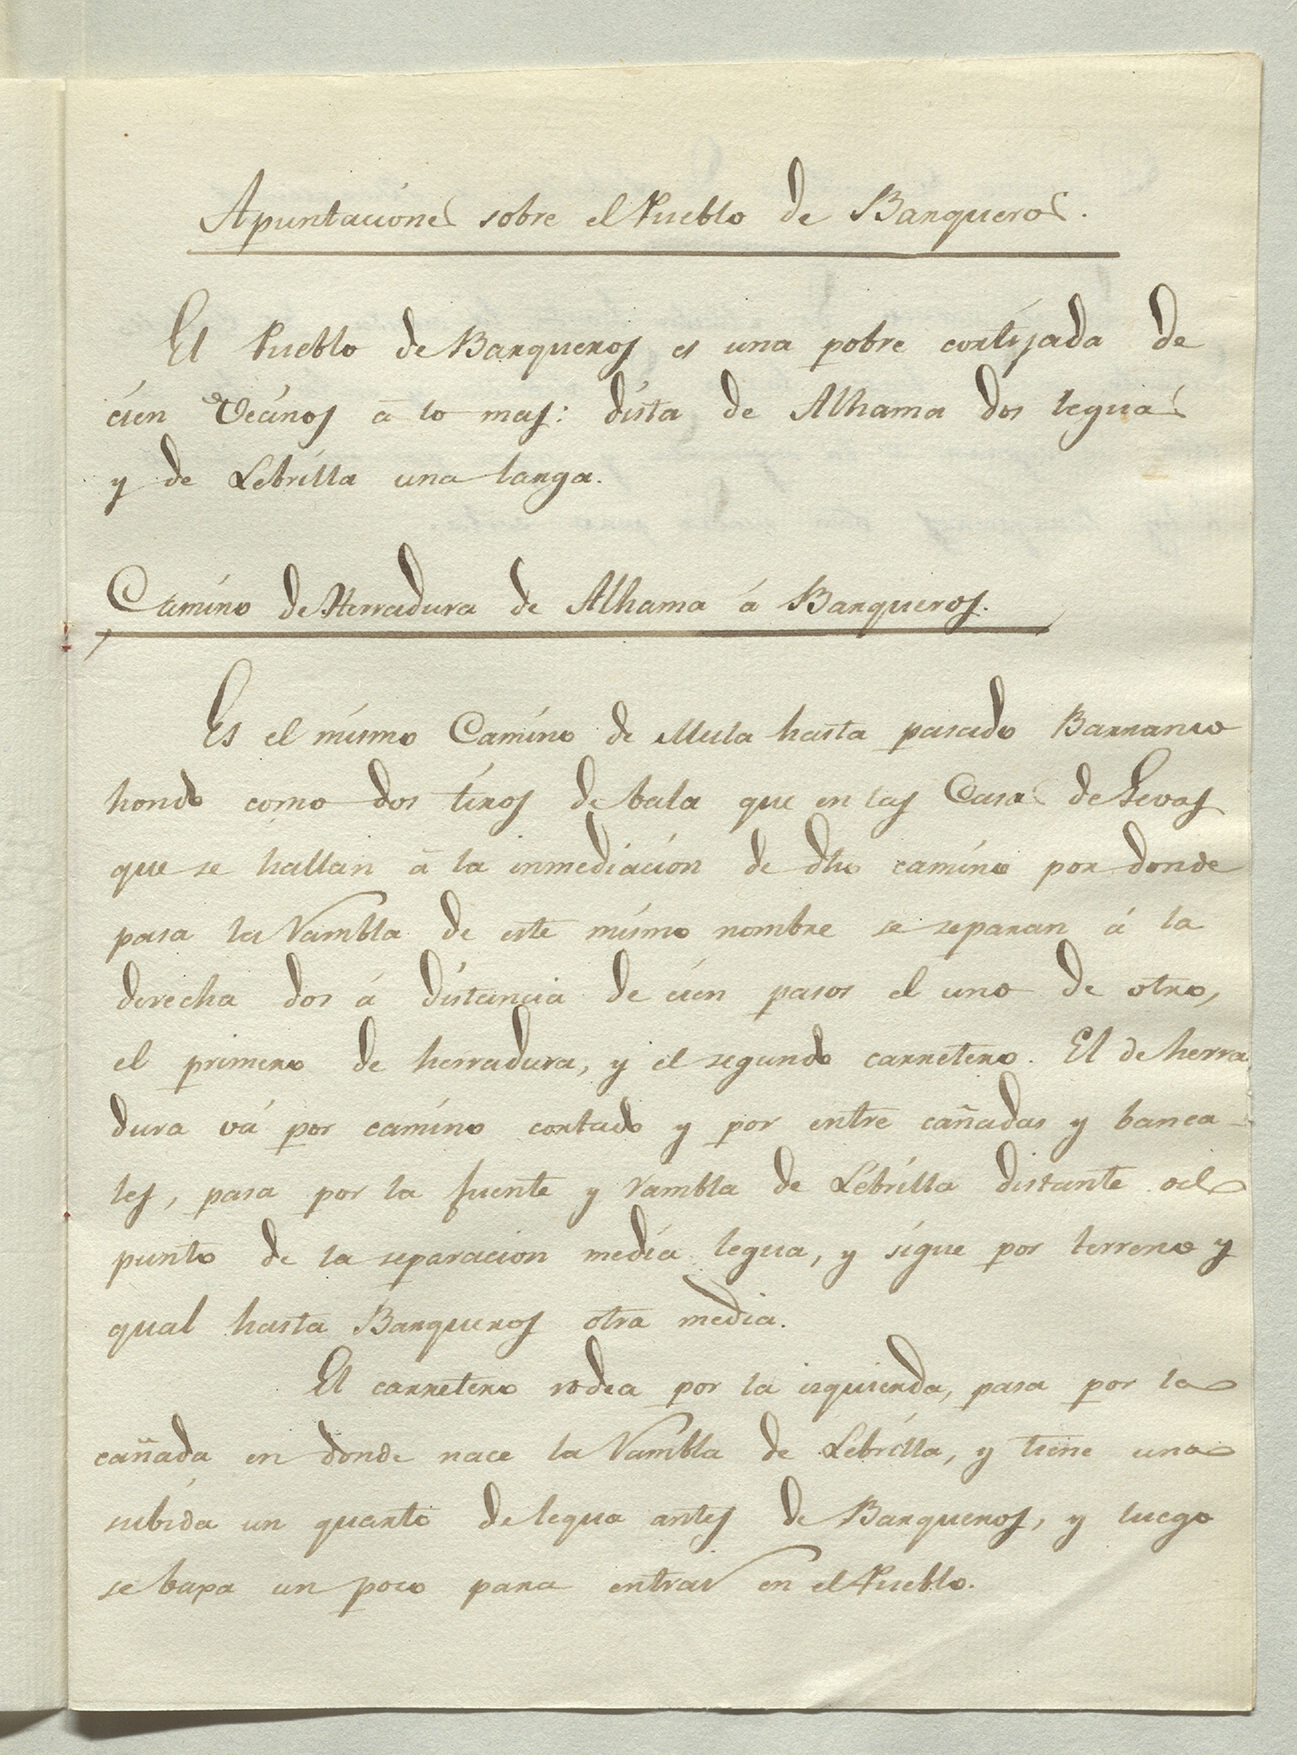 Apuntaciones sobre el Pueblo de Barqueros.
El Pueblo de Barqueros es una pobre cortijada de
cien Vecinos à lo mas: dista de Alhama dos leguas
y de Lebrilla una larga.
Camino de Herradura de Alhama á Barqueros.
Es el mismo Camino de Mula hasta pasado Barranco
hondo como dos tiros de bala que en las Casas de Gevas
que se hallan à la inmediacion de dho camino por donde
pasa la Rambla de este mismo nombre se separan á la
derecha dos á distancia de cien pasos el uno de otro,
el primero de herradura, y el segundo carretero. El de herra
dura vá por camino cortado y por entre cañadas y banca-
les, pasa por la fuente y rambla de Lebrilla distante del
punto de la separacion media legua, y sigue por terreno y
gual hasta Barqueros otra media.
El carretero rodea por la izquierda, pasa por la
cañada en donde nace la Rambla de Lebrilla, y tiene una
subida un quarto de legua antes de Barqueros, y luego
se baxa un poco para entrar en el Pueblo.